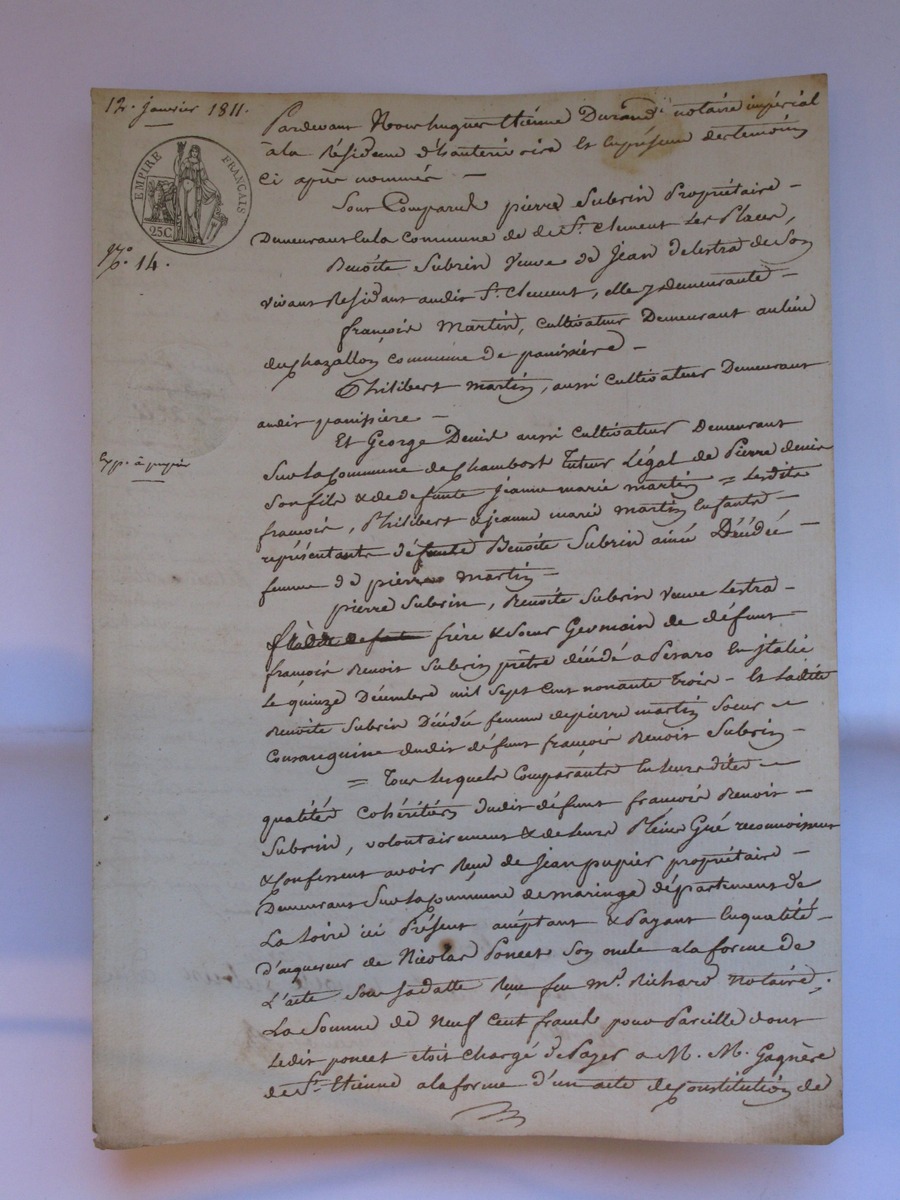 12. janvier 1811.
EMPIRE FRANÇAIS
25C
N.o 14.
Exp. à pupier
Pardevant Nous hugues Etiénne Durand notaire impérial
à la Résidence d'hauterivoire Et En présence des temoins
ci après nommés —
Sont Comparus pierre Subrin Propriétaire —
Demeurant En la Commune de de St. Clement Les Places,
Benoite Subrin Veuve de Jean delestra de Son
vivant Résidant audit St. Clement, elle y demeurante —
françois Martin, cultivateur Demeurant au lieu
du Chazallon, commune de panissière —
Philibert Martin, aussi Cultivateur Demeurant
audit panissiere —
Et George Denis aussi Cultivateur Demeurant
Sur la Commune de Chambost Tuteur Légal de Pierre denis
Son fils & de defunte Jeanne marie martin = Lesdits
françois, Philibert & jeanne marie martin Enfants —
représentants défunte Benoite Subrin ainée Décédée —
femme de pierre martin —
pierre Subrin, Benoite Subrin veuve Lestra —
frère & Soeur Germain de défunt
françois Benoit Subrin prêtre décédé a Pesaro En jtalie
Le quinze Décembre mil Sept Cent nonante trois — Et Ladite
Benoite Subrin Décédée femme de pierre martin Soeur —
Consanguine dudit défunt françois Benoit Subrin —
= Tous lesquels Comparants En leursdites —
qualités Cohéritiers dudit défunt françois Benoit —
Subrin, volontairement & de leurs Pleins Gré reconnoissent
& Confessent avoir Reçu de jean pupier propriétaire —
Demeurant Sur la Commune de maringe département de
La Loire ici Présent acceptant & Payant En qualité —
d'aquereur de Nicolas Poncet Son oncle a la forme de
L'acte Sous Sa datte Reçu feu Me. Richard Notaire,
La Somme de Neuf Cent francs pour Pareille dont
Ledit poncet étoit Chargé de Payer a M. M. Gagnère
de St. Etienne a la forme d'un acte de Constitution de